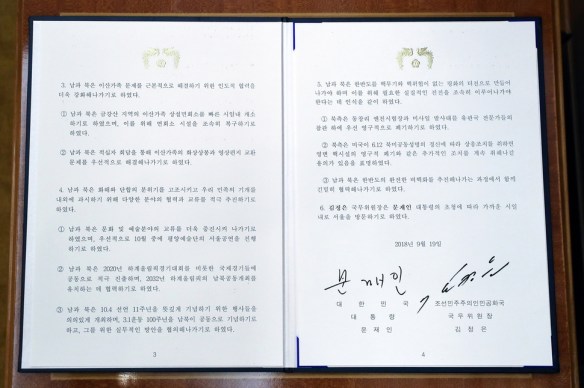 3. 남과 북은 이산가족 문제를 근본적으로 해결하기 위한 인도적 협력을
더욱 강화해나가기로 하였다.
① 남과 북은 금강산 지역의 이산가족 상설면회소를 빠른 시일내 개소
하기로 하였으며, 이를 위해 면회소 시설을 조속히 복구하기로
하였다.
② 남과 북은 적십자 회담을 통해 이산가족의 화상상봉과 영상편지 교환
문제를 우선적으로 해결해나가기로 하였다.
4. 남과 북은 화해와 단합의 분위기를 고조시키고 우리 민족의 기개를
내외에 과시하기 위해 다양한 분야의 협력과 교류를 적극 추진하기로
하였다.
① 남과 북은 문화 및 예술분야의 교류를 더욱 증진시켜 나가기로
하였으며, 우선적으로 10월 중에 평양예술단의 서울공연을 진행
하기로 하였다.
② 남과 북은 2020년 하계올림픽경기대회를 비롯한 국제경기들에
공동으로 적극 진출하며, 2032년 하계올림픽의 남북공동개최를
유치하는 데 협력하기로 하였다.
③ 남과 북은 10.4 선언 11주년을 뜻깊게 기념하기 위한 행사들을
의의있게 개최하며, 3.1운동 100주년을 남북이 공동으로 기념하기로
하고, 그를 위한 실무적인 방안을 협의해나가기로 하였다.
3
5. 남과 북은 한반도를 핵무기와 핵위협이 없는 평화의 터전으로 만들어
나가야 하며 이를 위해 필요한 실질적인 진전을 조속히 이루어나가야
한다는 데 인식을 같이 하였다.
① 북측은 동창리 엔진시험장과 미사일 발사대를 유관국 전문가들의
참관 하에 우선 영구적으로 폐기하기로 하였다.
② 북측은 미국이 6.12 북미공동성명의 정신에 따라 상응조치를 취하면
영변 핵시설의 영구적 폐기와 같은 추가적인 조치를 계속 취해나갈
용의가 있음을 표명하였다.
③ 남과 북은 한반도의 완전한 비핵화를 추진해나가는 과정에서 함께
긴밀히 협력해나가기로 하였다.
6. 김정은 국무위원장은 문재인 대통령의 초청에 따라 가까운 시일
내로 서울을 방문하기로 하였다.
2018년 9월 19일
문재인
대한민국
조선민주주의인민공화국
대통령
국무위원장
문재인
김정은
4